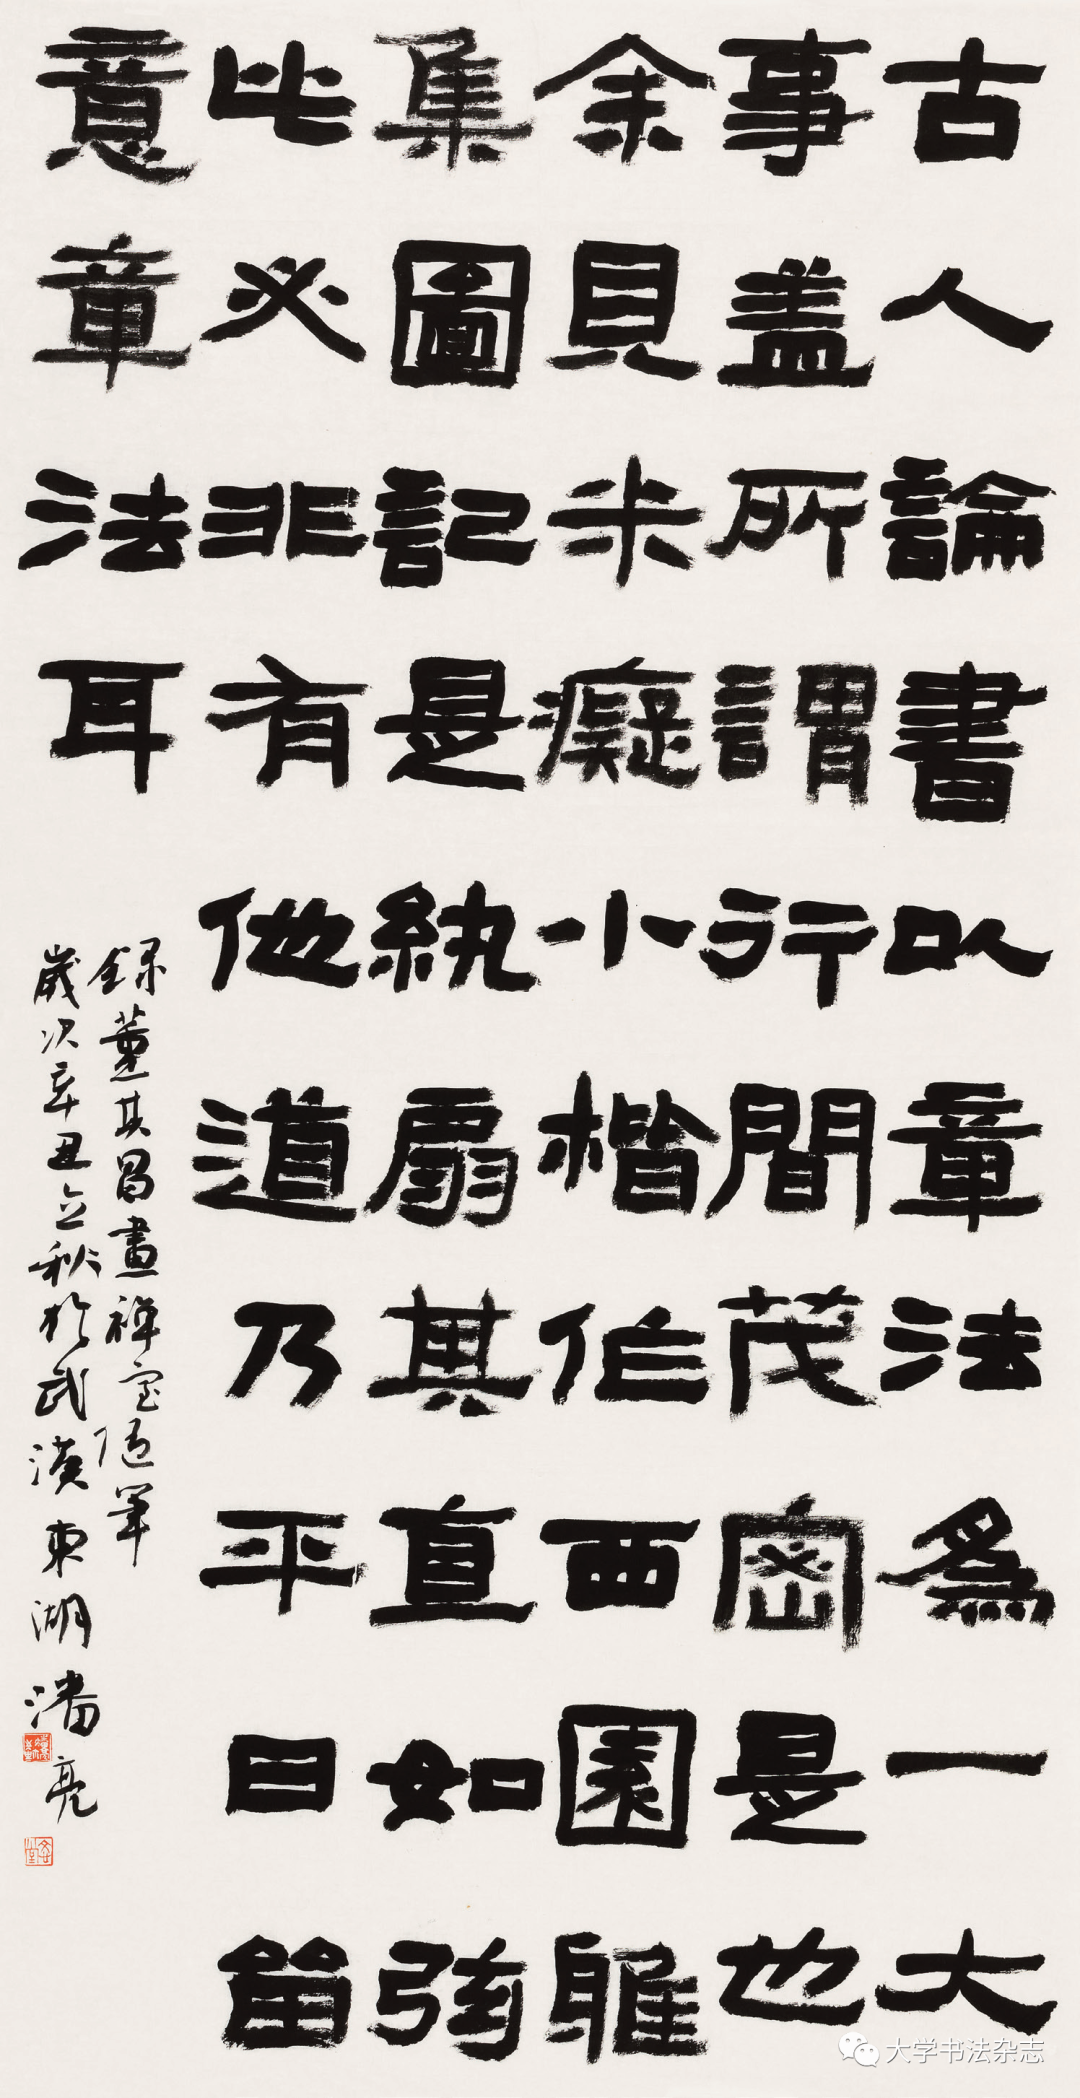 古人論書以章法為一大
事蓋所謂行間茂密是也
余見米癡小楷作西園雅
集圖記是紈扇其直如弦
此必非有他道乃平日留
意章法耳
録董其昌畫禪室隨筆
歲次辛丑立秋於武漢東湖潘亮
大学书法杂志